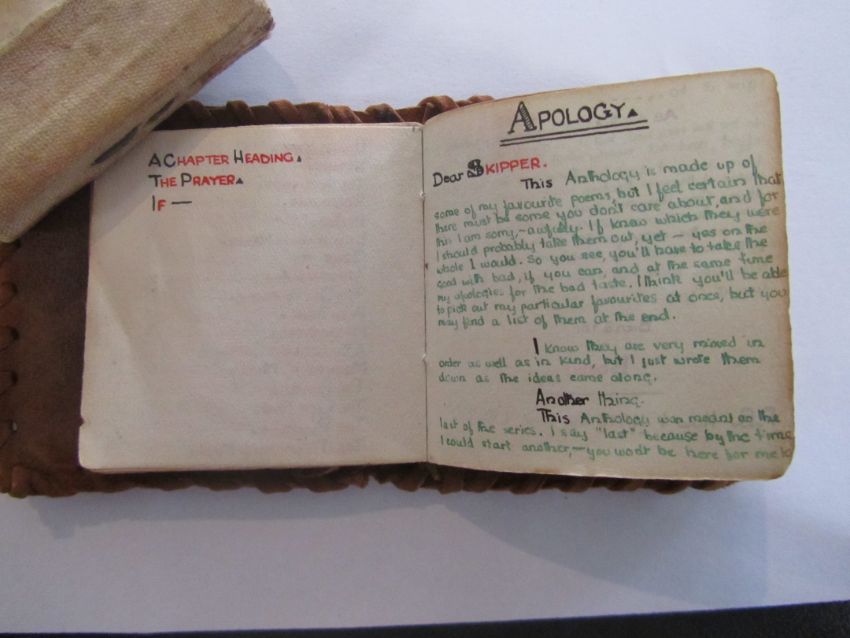 A CHAPTER HEADING.
THE PRAYER.
IF —
APOLOGY.
Dear SKIPPER.
This Anthology is made up of
some of my favourite poems, but I feel certain that
there must be some you don't care about, and for
this I am sorry, – awfully. If I knew which they were
I should probably take them out, yet – yes on the
whole I would. So you see, you'll have to take the
good with bad, if you can, and at the same time
my apologies for the bad taste. I think you'll be able
to pick out my particular favourites at once, but you
may find a list of them at the end.
I know they are very mixed in
order as well as in kind, but I just wrote them
down as the ideas came along.
Another thing.
This Anthology was meant as the
last of the series. I say "last" because by the time
I could start another, – you won't be here for me to